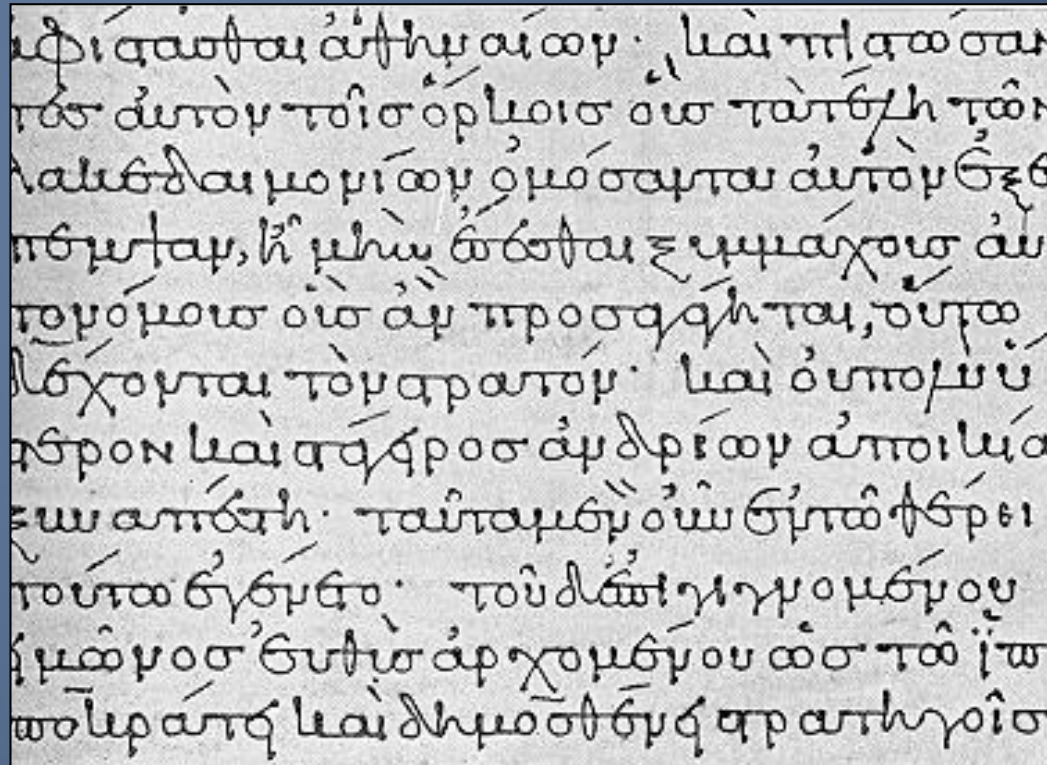 αφίστασθαι ἀθηναίων· καὶ πιστώσαν
τεσ ἀυτὸν τοῖσ ὅρκοισ οἷσ τὰ τέλη τῶν
λακεδαιμονίων ὀμόσανται ἀυτὸν ἐξέ
πεμψαν, ἦ μὴν ἔσεσθαι ξυμμάχοισ ἀυ
τονόμοισ οἷσ ἂν προσαγάγηται, οὕτω
δέχονται τὸν στρατόν· καὶ ὀυπολὺ ὕ
στερον καὶ στάγειροσ ἀνδρίων ἀποικία
ξυναπέστη· ταῦταμὲν ὀῦν ἐντῶ θέρει
τούτω ἐγένετο· τοῦ δ᾽ἐπιγιγνομένου
ειμῶνοσ ἐυθὺσ ἀρχομένου ὡσ τῶ ἱπ
ποκράτει καὶ δημοσθένει στρατηγοῖσ